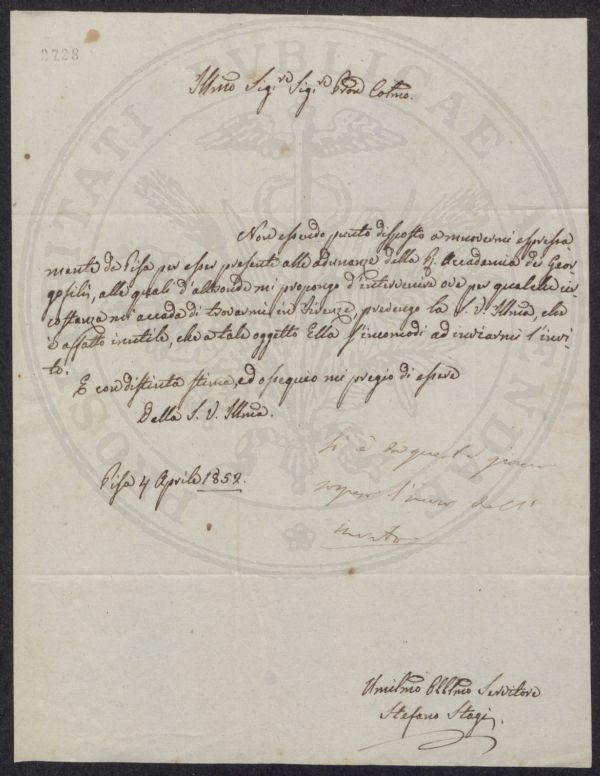 2728
Illmo Sig.re Sig.re Pron Colmo.
Non essendo punto disposto a muovermi espressa
mente da Pisa per esser presente alle adunanze della R. Accademia dei Geor-
gofili, alle quali d'altronde mi propongo d'intervenire ove per qualche cir-
costanza mi accada di trovarmi in Firenze, prevengo la S. V. Illma, che
è affatto inutile, che a tale oggetto Ella s'incomodi ad inviarmi l'invi-
to.
E con distinta stima, ed ossequio mi pregio di essere
Della S. V. Illma.
Pisa 4 Aprile 1852.
Si è da questo giorno
l'invio dell'
invito
Umilmo Obbmo Servitore
Stefano Stagi.
PROSPERITATI PVBLICAE AVGENDAE